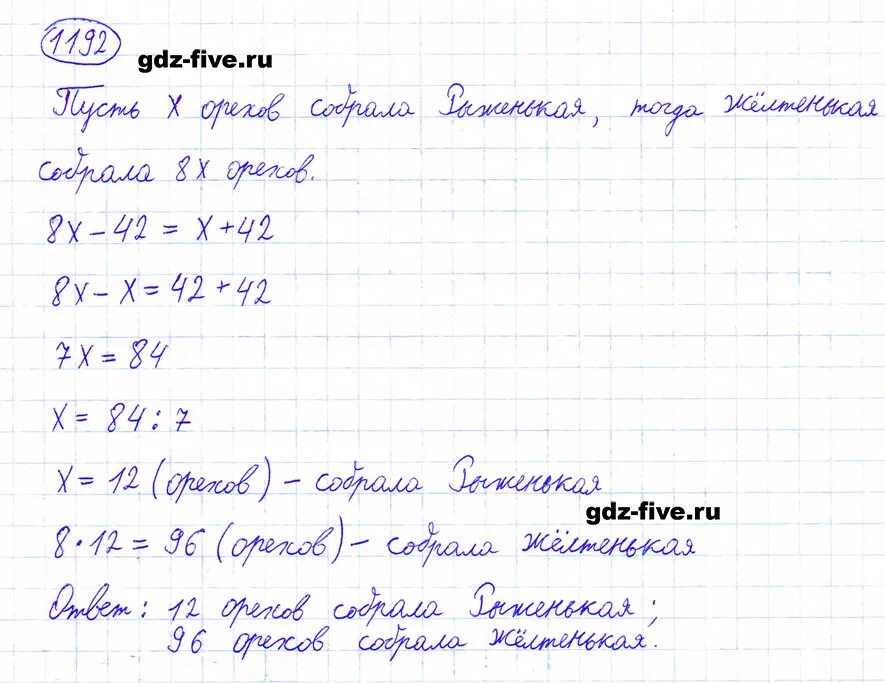 1192
gdz-five.ru
Пусть х орехов собрала Рыженькая, тогда жёлтенькая
собрала 8х орехов.
8х - 42 = х + 42
8х - х = 42 + 42
7х = 84
х = 84 : 7
х = 12 (орехов) - собрала Рыженькая
gdz-five.ru
8 · 12 = 96 (орехов) - собрала жёлтенькая
Ответ: 12 орехов собрала Рыженькая;
96 орехов собрала жёлтенькая.